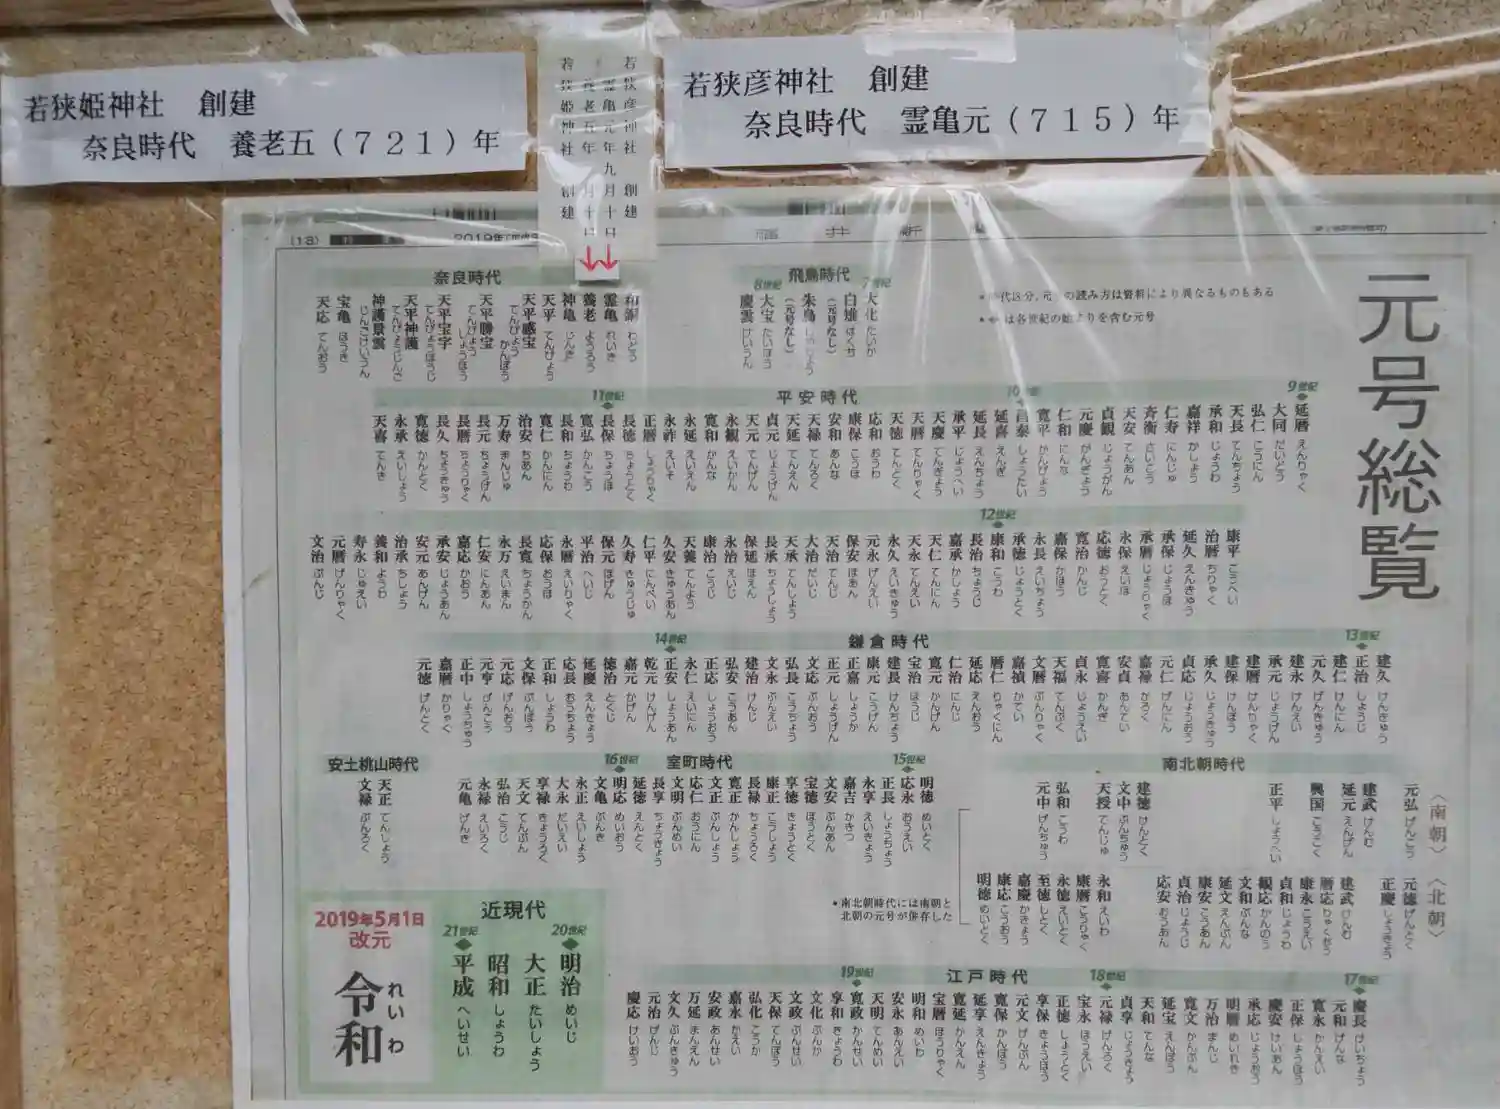 若狭姫神社 創建
奈良時代 養老五（７２１）年
若狭彦神社 創建
霊亀元年九月十日
若狭姫神社 創建
若狭彦神社 創建
奈良時代 霊亀元（７１５）年
元号総覧
飛鳥時代
7世紀
大化 たいか
白雉 はくち
（元号なし）
朱鳥
（元号なし）
8世紀
大宝 たいほう
慶雲 けいうん
奈良時代
和銅 わどう
霊亀 れいき
養老 ようろう
神亀 じんき
天平 てんぴょう
天平感宝 てんぴょうかんぽう
天平勝宝 てんぴょうしょうほう
天平宝字 てんぴょうほうじ
天平神護 てんぴょうじんご
神護景雲 じんごけいうん
宝亀 ほうき
天応 てんおう
平安時代
9世紀
延暦 えんりゃく
大同 だいどう
弘仁 こうにん
天長 てんちょう
承和 じょうわ
嘉祥 かしょう
仁寿 にんじゅ
斉衡 さいこう
天安 てんあん
貞観 じょうがん
元慶 がんぎょう
仁和 にんな
寛平 かんぴょう
10世紀
昌泰 しょうたい
延喜 えんぎ
延長 えんちょう
承平 じょうへい
天慶 てんぎょう
天暦 てんりゃく
天徳 てんとく
応和 おうわ
康保 こうほ
安和 あんな
天禄 てんろく
天延 てんえん
貞元 じょうげん
天元 てんげん
永観 えいかん
寛和 かんな
永延 えいえん
永祚 えいそ
正暦 しょうりゃく
長徳 ちょうとく
11世紀
長保 ちょうほ
寛弘 かんこう
長和 ちょうわ
寛仁 かんにん
治安 ちあん
万寿 まんじゅ
長元 ちょうげん
長暦 ちょうりゃく
長久 ちょうきゅう
寛徳 かんとく
永承 えいしょう
天喜 てんき
康平 こうへい
治暦 ちりゃく
延久 えんきゅう
承保 じょうほ
承暦 じょうりゃく
永保 えいほ
応徳 おうとく
寛治 かんじ
嘉保 かほう
永長 えいちょう
承徳 じょうとく
12世紀
康和 こうわ
長治 ちょうじ
嘉承 かしょう
天仁 てんにん
天永 てんえい
永久 えいきゅう
元永 げんえい
保安 ほあん
天治 てんじ
大治 だいじ
天承 てんしょう
長承 ちょうしょう
保延 ほえん
永治 えいじ
康治 こうじ
天養 てんよう
久安 きゅうあん
仁平 にんぺい
久寿 きゅうじゅ
保元 ほげん
平治 へいじ
永暦 えいりゃく
応保 おうほ
長寛 ちょうかん
永万 えいまん
仁安 にんあん
嘉応 かおう
承安 じょうあん
安元 あんげん
治承 ちしょう
養和 ようわ
寿永 じゅえい
元暦 げんりゃく
文治 ぶんじ
鎌倉時代
建久 けんきゅう
13世紀
正治 しょうじ
建仁 けんにん
元久 げんきゅう
建永 けんえい
承元 じょうげん
建暦 けんりゃく
建保 けんぽう
承久 じょうきゅう
貞応 じょうおう
元仁 げんにん
嘉禄 かろく
安貞 あんてい
寛喜 かんぎ
貞永 じょうえい
天福 てんぷく
文暦 ぶんりゃく
嘉禎 かてい
暦仁 りゃくにん
延応 えんおう
仁治 にんじ
寛元 かんげん
宝治 ほうじ
建長 けんちょう
康元 こうげん
正嘉 しょうか
正元 しょうげん
文応 ぶんおう
弘長 こうちょう
文永 ぶんえい
建治 けんじ
弘安 こうあん
正応 しょうおう
永仁 えいにん
14世紀
正安 しょうあん
乾元 けんげん
嘉元 かげん
徳治 とくじ
延慶 えんきょう
応長 おうちょう
正和 しょうわ
文保 ぶんぽう
元応 げんおう
元亨 げんこう
正中 しょうちゅう
嘉暦 かりゃく
元徳 げんとく
南北朝時代
〈南朝〉
元弘 げんこう
建武 けんむ
延元 えんげん
興国 こうこく
正平 しょうへい
建徳 けんとく
文中 ぶんちゅう
天授 てんじゅ
弘和 こうわ
元中 げんちゅう
〈北朝〉
元徳 げんとく
正慶 しょうきょう
建武 けんむ
暦応 りゃくおう
康永 こうえい
貞和 じょうわ
観応 かんのう
文和 ぶんな
延文 えんぶん
康安 こうあん
貞治 じょうじ
応安 おうあん
永和 えいわ
康暦 こうりゃく
永徳 えいとく
至徳 しとく
嘉慶 かきょう
康応 こうおう
明徳 めいとく
＊南北朝時代には南朝と
北朝の元号が併存した
室町時代
明徳 めいとく
15世紀
応永 おうえい
正長 しょうちょう
永享 えいきょう
嘉吉 かきつ
文安 ぶんあん
宝徳 ほうとく
享徳 きょうとく
康正 こうしょう
長禄 ちょうろく
寛正 かんしょう
文正 ぶんしょう
応仁 おうにん
文明 ぶんめい
長享 ちょうきょう
延徳 えんとく
16世紀
明応 めいおう
文亀 ぶんき
永正 えいしょう
大永 だいえい
享禄 きょうろく
天文 てんぶん
弘治 こうじ
永禄 えいろく
元亀 げんき
安土桃山時代
天正 てんしょう
文禄 ぶんろく
江戸時代
17世紀
慶長 けいちょう
元和 げんな
寛永 かんえい
正保 しょうほう
慶安 けいあん
承応 じょうおう
明暦 めいれき
万治 まんじ
寛文 かんぶん
延宝 えんぽう
天和 てんな
貞享 じょうきょう
18世紀
元禄 げんろく
宝永 ほうえい
正徳 しょうとく
享保 きょうほう
元文 げんぶん
寛保 かんぽう
延享 えんきょう
寛延 かんえん
宝暦 ほうりゃく
明和 めいわ
安永 あんえい
天明 てんめい
19世紀
寛政 かんせい
享和 きょうわ
文化 ぶんか
文政 ぶんせい
天保 てんぽう
弘化 こうか
嘉永 かえい
安政 あんせい
万延 まんえん
文久 ぶんきゅう
元治 げんじ
慶応 けいおう
近現代
20世紀
明治 めいじ
大正 たいしょう
昭和 しょうわ
21世紀
平成 へいせい
2019年5月1日
改元
令和 れいわ